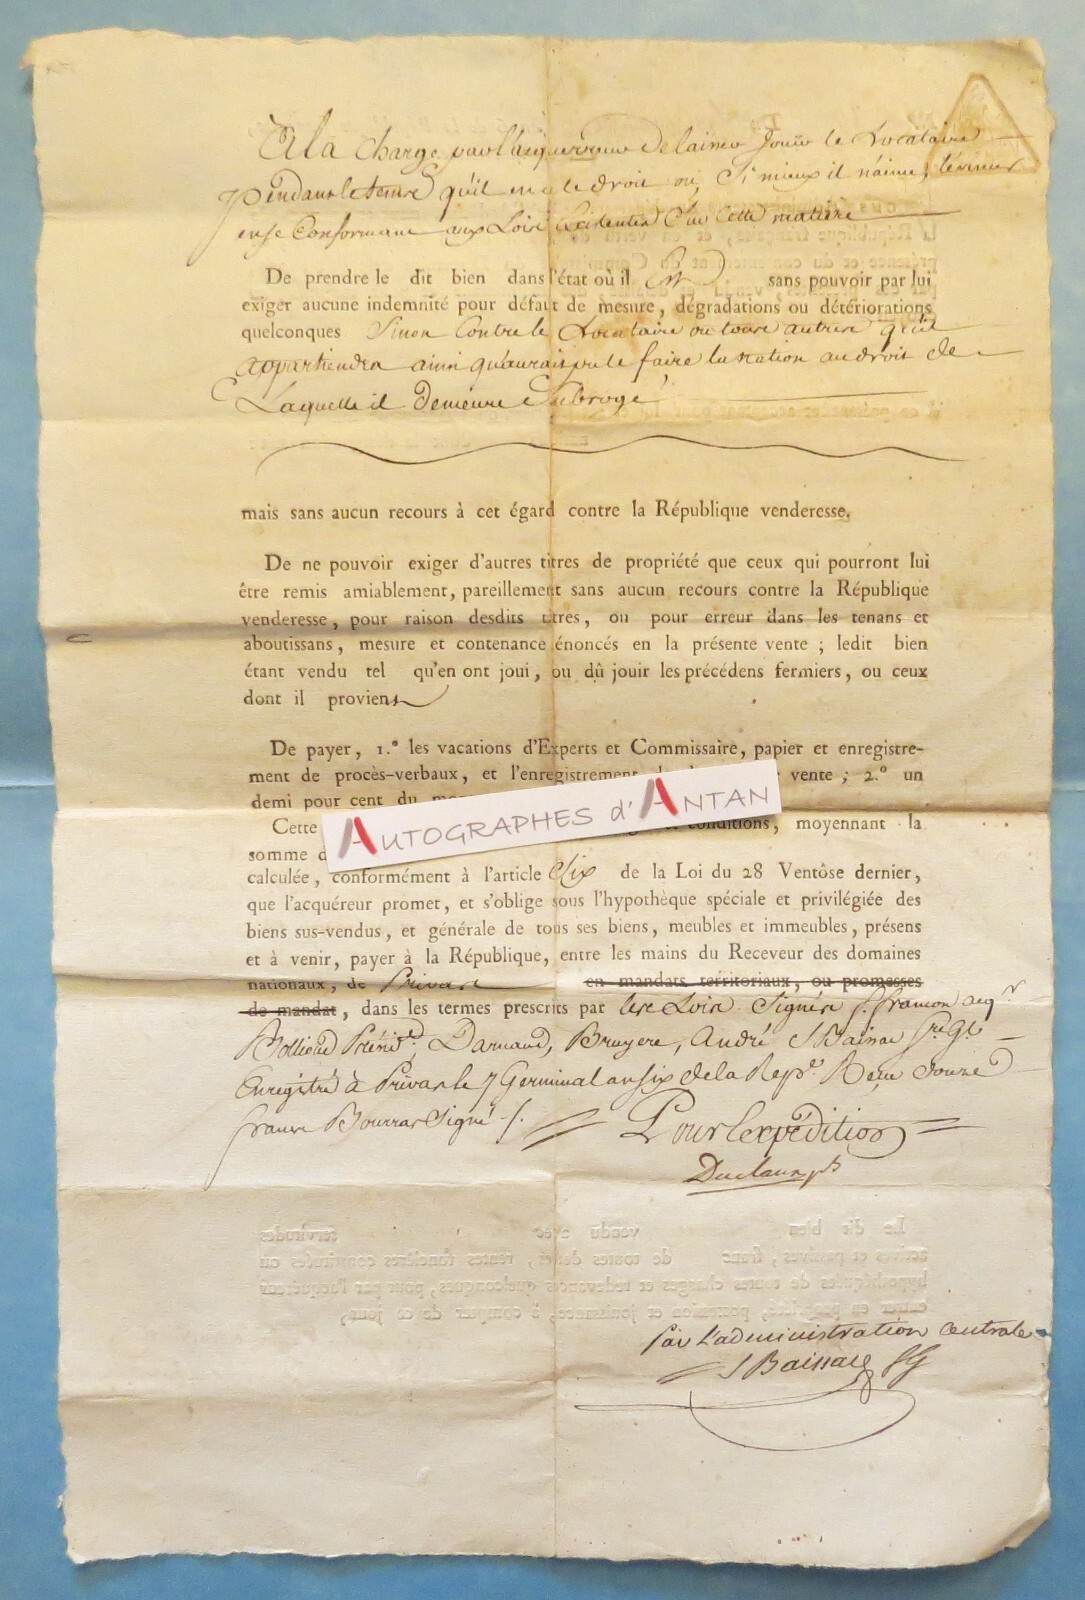 A la charge par l'acquereur de laisser jouir le Locataire
pendant le temps qu'il en a le droit ou, si mieux il n'aime, l'évincer
en se conformant aux Loix Existentes sur cette matiere
De prendre le dit bien dans l'état où il Est sans pouvoir par lui
exiger aucune indemnité pour défaut de mesure, dégradations ou détériorations
quelconques sinon contre le Locataire ou tous autres qu'il
appartiendra ainsi qu'aurait pu le faire la nation au droit de
Laquelle il demeure Subrogé
mais sans aucun recours à cet égard contre la République venderesse.
De ne pouvoir exiger d'autres titres de propriété que ceux qui pourront lui
être remis amiablement, pareillement sans aucun recours contre la République
venderesse, pour raison desdits titres, ou pour erreur dans les tenans et
aboutissans, mesure et contenance énoncés en la présente vente ; ledit bien
étant vendu tel qu'en ont joui, ou dû jouir les précédens fermiers, ou ceux
dont il proviens
De payer, 1.° les vacations d'Experts et Commissaire, papier et enregistre-
ment de procès-verbaux, et l'enregistrement vente ; 2.° un
demi pour cent du
Cette conditions, moyennant la
somme
AUTOGRAPHES d'ANTAN
calculée, conformément à l'article Six de la Loi du 28 Ventôse dernier,
que l'acquéreur promet, et s'oblige sous l'hypothèque spéciale et privilégiée des
biens sus-vendus, et générale de tous ses biens, meubles et immeubles, présens
et à venir, payer à la République, entre les mains du Receveur des domaines
nationaux, de Privas en mandats territoriaux, ou promesses
de mandat, dans les termes prescrits par les Loix Signés f. francon acq.r
Bollioud Présid.t, Darnaud, Bruyere, André S Baissac S.re G.l
Enregistré à Privas le 7 Germinal an six de la Rep.e Reçu Douze
francs Bourras Signé
Pour Expédition
Duclaux pt
Par L'administration centrale
S Baissac SG